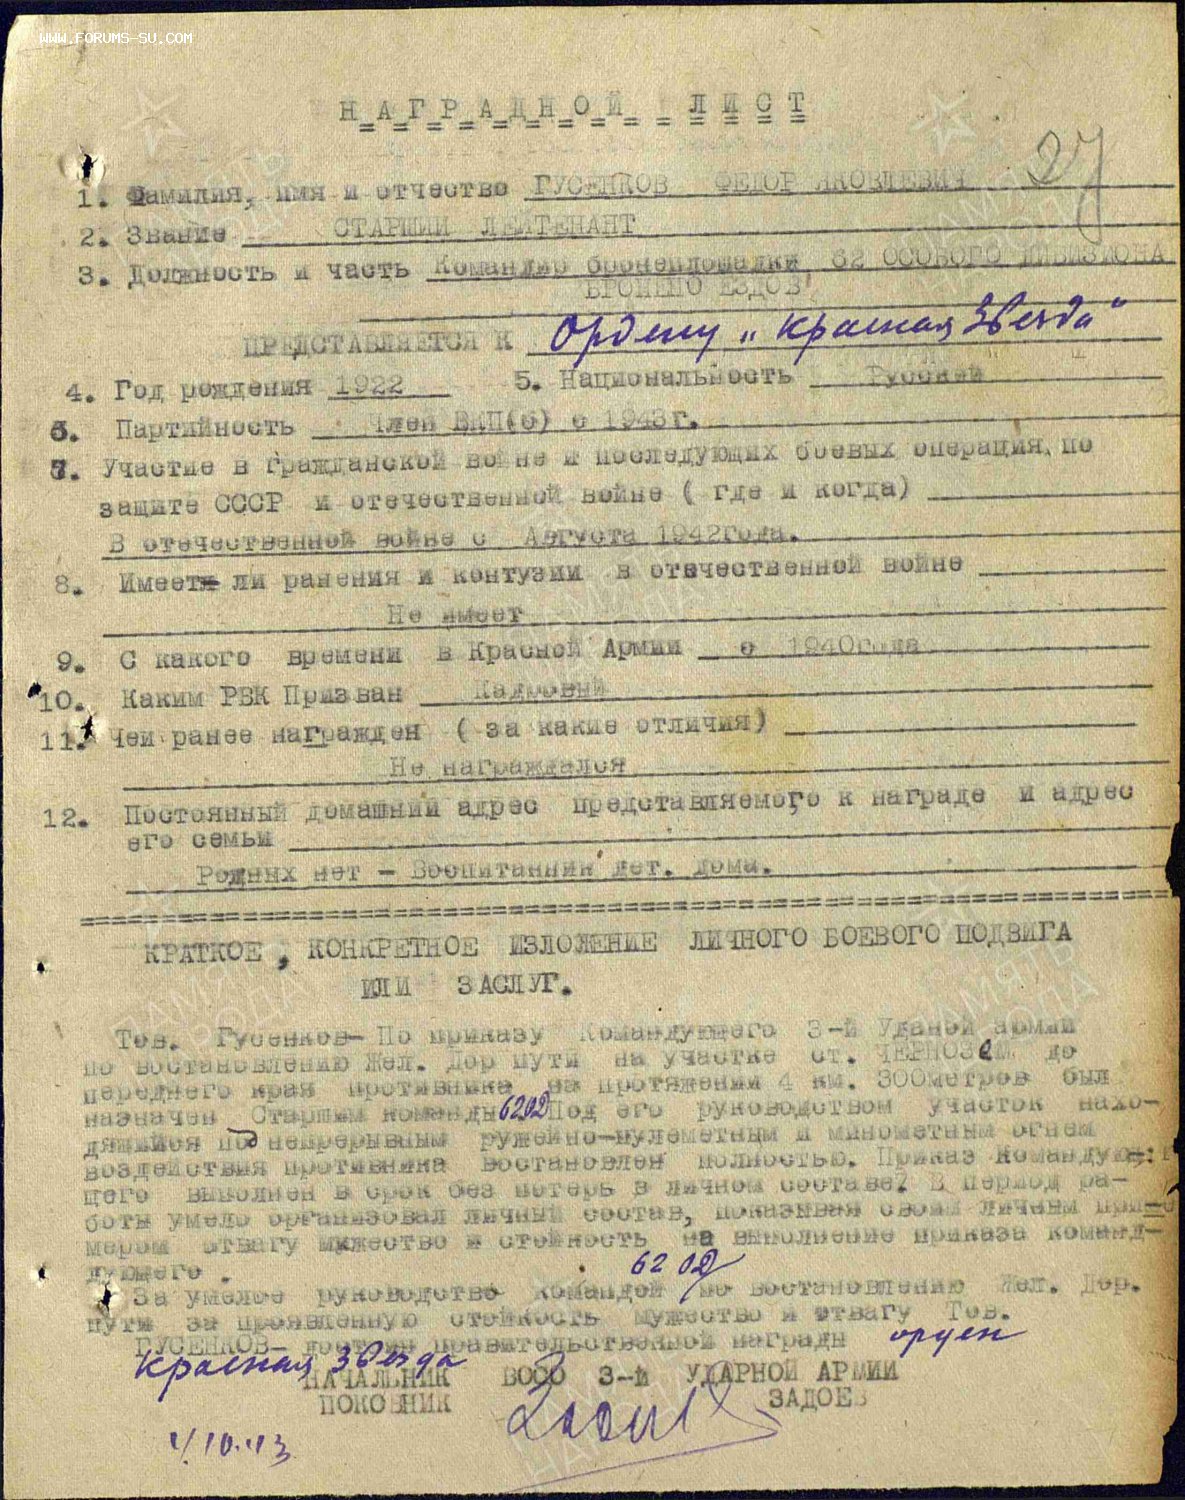 WWW.FORUMS-SU.COM
НАГРАДНОЙ ЛИСТ
27
1. Фамилия, имя и отчество ГУСЕНКОВ ФЕДОР ЯКОВЛЕВИЧ
2. Звание СТАРШИЙ ЛЕЙТЕНАНТ
3. Должность и часть Командир бронеплощадки 62 ОСОБОГО ДИВИЗИОНА
БРОНЕПОЕЗДОВ
ПРЕДСТАВЛЯЕТСЯ К Ордену „Красная Звезда"
4. Год рождения 1922 5. Национальность Русский
6. Партийность Член ВКП(б) с 1943г.
7. Участие в гражданской войне и последующих боевых операция, по
защите СССР и отечественной войне ( где и когда)
В отечественной войне с Августа 1942года.
8. Имеет ли ранения и контузии в отечественной войне
Не имеет
9. С какого времени в Красной Армии с 1940года
10. Каким РВК Призван Кадровый
11. Чем ранее награжден ( за какие отличия)
Не награждался
12. Постоянный домашний адрес представляемого к награде и адрес
его семьи
Родных нет - Воспитанник дет. дома.
КРАТКОЕ, КОНКРЕТНОЕ ИЗЛОЖЕНИЕ ЛИЧНОГО БОЕВОГО ПОДВИГА
ИЛИ ЗАСЛУГ.
Тов. Гусенков- По приказу Командующего 3-й Уданой армии
по востановлению Жел. Дор пути на участке ст. ЧЕРНОЗЕМ до
переднего края противника на протяжении 4 км. 300метров был
назначен Старшим команды 62ОД Под его руководством участок нахо-
дящийся под непрерывным ружейно-пулеметным и минометным огнем
воздействия противника востановлен полностью. Приказ Командую-
щего выполнен в срок без потерь в личном составе. В период ра-
боты умело организовал личный состав, показывая своим личным при-
мером отвагу мужество и стойкость на выполнение приказа команд-
дующего.
62 ОД
За умелое руководство командой по востановлению Жел. Дор.
пути за проявленную стойкость мужество и отвагу Тов.
ГУСЕНКОВ- достоин правительственной награды орден
Красная Звезда
НАЧАЛЬНИК ВОСО 3-й УДАРНОЙ АРМИИ
ПОКОВНИК ЗАДОЕВ